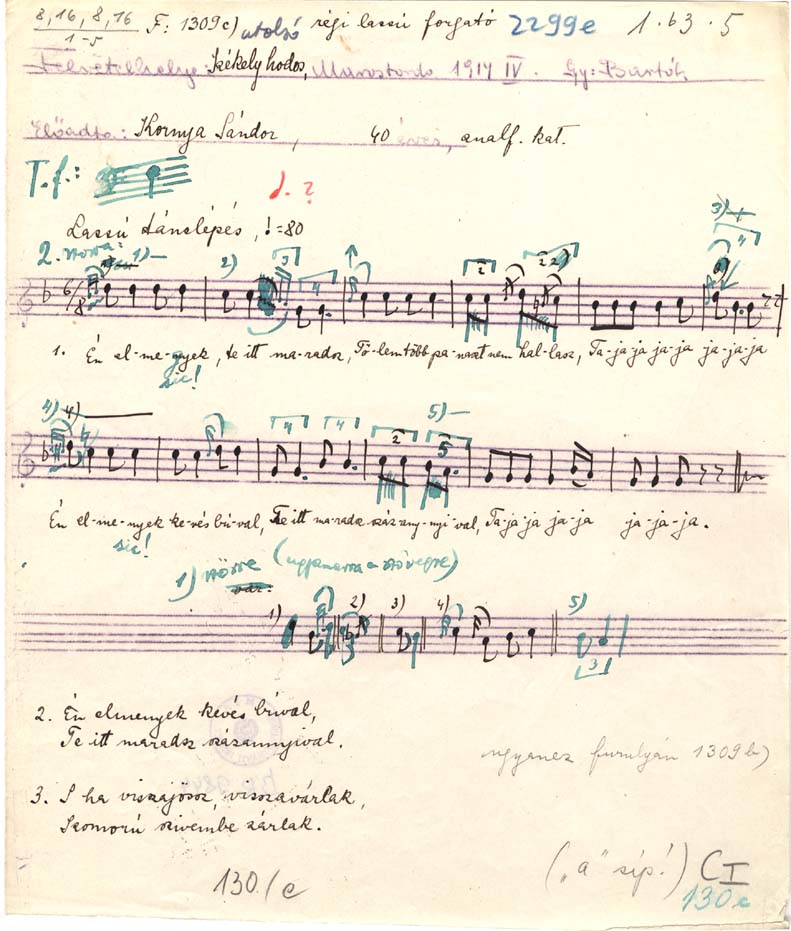 8, 16, 8, 16 F: 1309c) utolsó régi lassú forgató 2299e 1.63.5
1-5
Felvétel helye: Székelyhodos, Marostorda 1914 IV. Gy: Bartók
Előadta: Kornya Sándor, 40 éves, analf. kat.
T.f.:
♩. ?
Lassú tánclépés, ♩=80
2. versre: 1)— 2) 3 4 2 2 3)
6/8
1. Én el-me-nyek, te itt ma-radsz, Tö-lem több pa-naszt nem hal-lasz, Ta-ja-ja ja-ja ja-ja-ja
sic!
4) 4) 4 4 2 5)— 5
Én el-me-nyek ke-vés bú-val, Te itt ma-radsz száz any-nyi-val, Ta-ja-ja ja-ja ja-ja-ja.
sic!
1) (ugyanarra a szövegre)
var:
1) 2) 3) 4) 5)
3
2. Én elmenyek kevés búval,
Te itt maradsz százannyival.
ugyanez furulyán 1309b)
3. S ha visszajössz, visszavárlak,
Szomorú szivembe zárlak.
130/c
("a" síp!) CI
130c